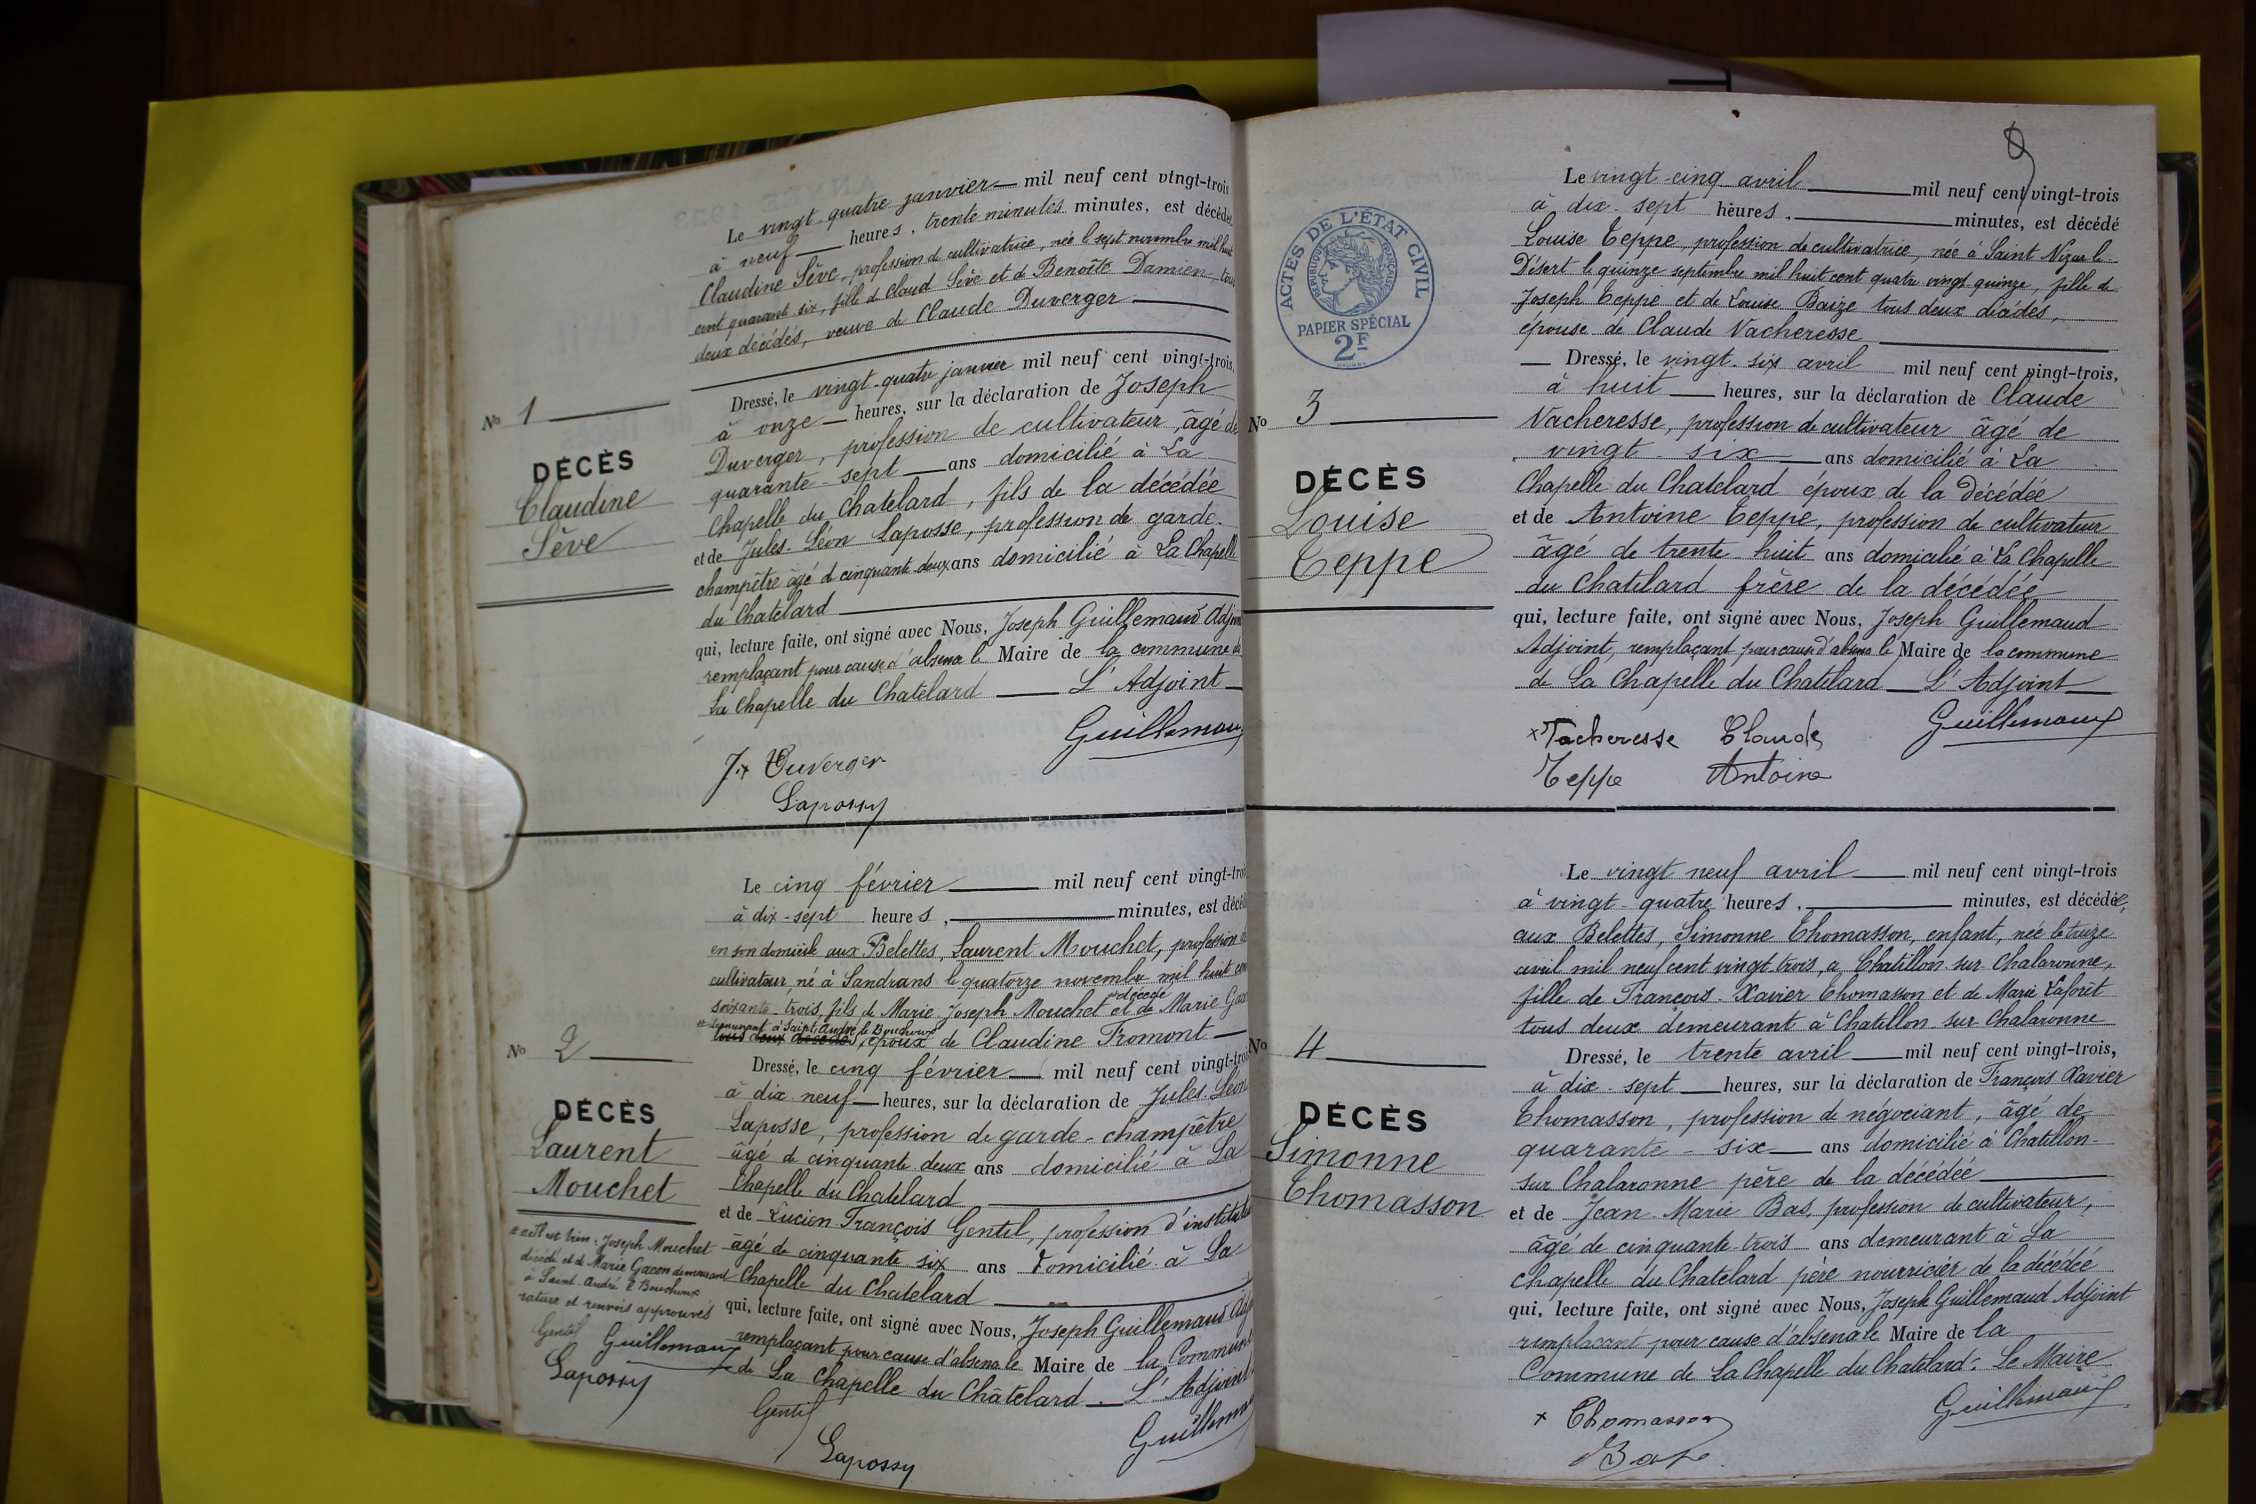 Le vingt-quatre janvier mil neuf cent vingt-trois
à neuf heures, trente minutes minutes, est décédée
Claudine Sève, profession de cultivatrice, née le sept novembre mil huit
cent quarante six, fille de Claud Sève et de Benoîte Damien, tous
deux décédés, veuve de Claude Duverger
Dressé, le vingt-quatre janvier mil neuf cent vingt-trois,
No 1
à onze heures, sur la déclaration de Joseph
Duverger, profession de cultivateur, âgé de
DÉCÈS
quarante-sept ans domicilié à La
Claudine
Chapelle du Chatelard, fils de la décédée
Sève
et de Jules-Léon Laposse, profession de garde-
champêtre âgé de cinquante-deux ans domicilié à La Chapelle
du Chatelard
qui, lecture faite, ont signé avec Nous, Joseph Guillemaud Adjoint
remplaçant pour cause d'absence le Maire de la commune de
La Chapelle du Chatelard L'Adjoint
Guillemaud
J. Duverger
Lapossy
Le cinq février mil neuf cent vingt-trois
à dix-sept heures, minutes, est décédé
en son domicile aux Belettes, Laurent Mouchet, profession de
cultivateur, né à Sandrans le quatorze novembre mil huit cent
soixante-trois, fils de Marie-Joseph Mouchet décédé et de Marie Gacon
demeurant à Saint-André le Bouchoux
tous deux décédés, époux de Claudine Fromont
No 2
Dressé, le cinq février mil neuf cent vingt-trois
à dix-neuf heures, sur la déclaration de Jules-Léon
DÉCÈS
Laposse, profession de garde-champêtre
Laurent
âgé de cinquante-deux ans domicilié à La
Mouchet
Chapelle du Chatelard
et de Lucien François Gentil, profession d'instituteur
âgé de cinquante six ans domicilié à La
Chapelle du Chatelard
Joseph Mouchet
décédé et de Marie Gacon demeurant
à Saint-André le Bouchoux
rature et renvois approuvés
Gentil
Guillemaud
Lapossy
qui, lecture faite, ont signé avec Nous, Joseph Guillemaud Adjoint
remplaçant pour cause d'absence le Maire de la Commune
de La Chapelle du Châtelard L'Adjoint
Gentil
Guillemaud
Lapossy
ACTES DE L'ÉTAT CIVIL
RÉPUBLIQUE FRANÇAISE
PAPIER SPÉCIAL
2F
Le vingt-cinq avril mil neuf cent vingt-trois
à dix-sept heures, minutes, est décédé
Louise Teppe, profession de cultivatrice, née à Saint Nizier le
Désert le quinze septembre mil huit cent quatre vingt quinze, fille de
Joseph Teppe et de Louise Baize tous deux décédés,
épouse de Claude Vacheresse
Dressé, le vingt-six avril mil neuf cent vingt-trois,
à huit heures, sur la déclaration de Claude
No 3
Vacheresse, profession de cultivateur âgé de
vingt-six ans domicilié à La
DÉCÈS
Chapelle du Chatelard époux de la décédée
Louise
et de Antoine Teppe, profession de cultivateur
Teppe
âgé de trente huit ans domicilié à La Chapelle
du Chatelard frère de la décédée
qui, lecture faite, ont signé avec Nous, Joseph Guillemaud
Adjoint, remplaçant pour cause d'absence le Maire de la commune
de La Chapelle du Chatelard L'Adjoint
Vacheresse Claude
Guillemaud
Teppe Antoine
Le vingt neuf avril mil neuf cent vingt-trois
à vingt-quatre heures, minutes, est décédée,
aux Belettes, Simonne Thomasson, enfant, née le treize
avril mil neuf cent vingt trois, à Chatillon sur Chalaronne,
fille de François-Xavier Thomasson et de Marie Laforêt
tous deux demeurant à Chatillon sur Chalaronne
No 4
Dressé, le trente avril mil neuf cent vingt-trois,
à dix-sept heures, sur la déclaration de François Xavier
DÉCÈS
Thomasson, profession de négociant, âgé de
Simonne
quarante-six ans domicilié à Chatillon-
Thomasson
sur Chalaronne père de la décédée
et de Jean-Marie Bas, profession de cultivateur,
âgé de cinquante-trois ans demeurant à La
Chapelle du Chatelard père nourricier de la décédée
qui, lecture faite, ont signé avec Nous, Joseph Guillemaud Adjoint
remplaçant pour cause d'absence le Maire de la
Commune de La Chapelle du Chatelard. Le Maire
Thomasson
Guillemaud